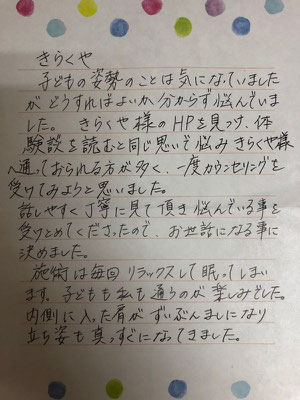 きらくや
子どもの姿勢のことは気になっていました
が どうすればよいか分からず悩んでいま
した。 きらくや様のHPを見つけ、体
験談を読むと同じ思いで悩み きらくや様
へ通っておられる方が多く、一度カウンセリングを
受けてみようと思いました。
話しやすく丁寧に見て頂き悩んでいる事を
受けとめてくださったので、お世話になる事に
決めました。
施術は毎回リラックスして眠ってしまい
ます。子どもも私も通うのが楽しみでした。
内側に入った肩がずいぶんましになり
立ち姿も真っすぐになってきました。